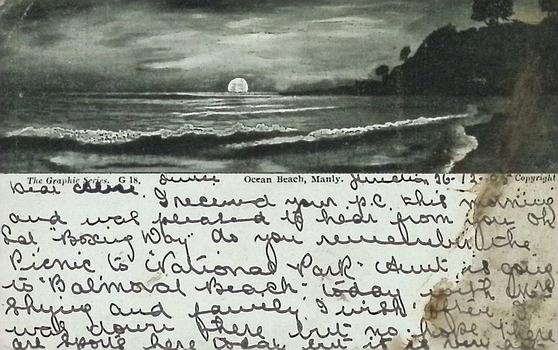 The Graphic Series. G 18. Ocean Beach, Manly. Copyright
Dear Junction 26-12-
I received your p.c. this morning
and was pleased to hear from you
"Boxing Day" do you remember the
Picnic to "National Park" Aunt is going
to "Balmoral Beach" today with
and family I wish
was down there but no hope there
are sports here today but it is